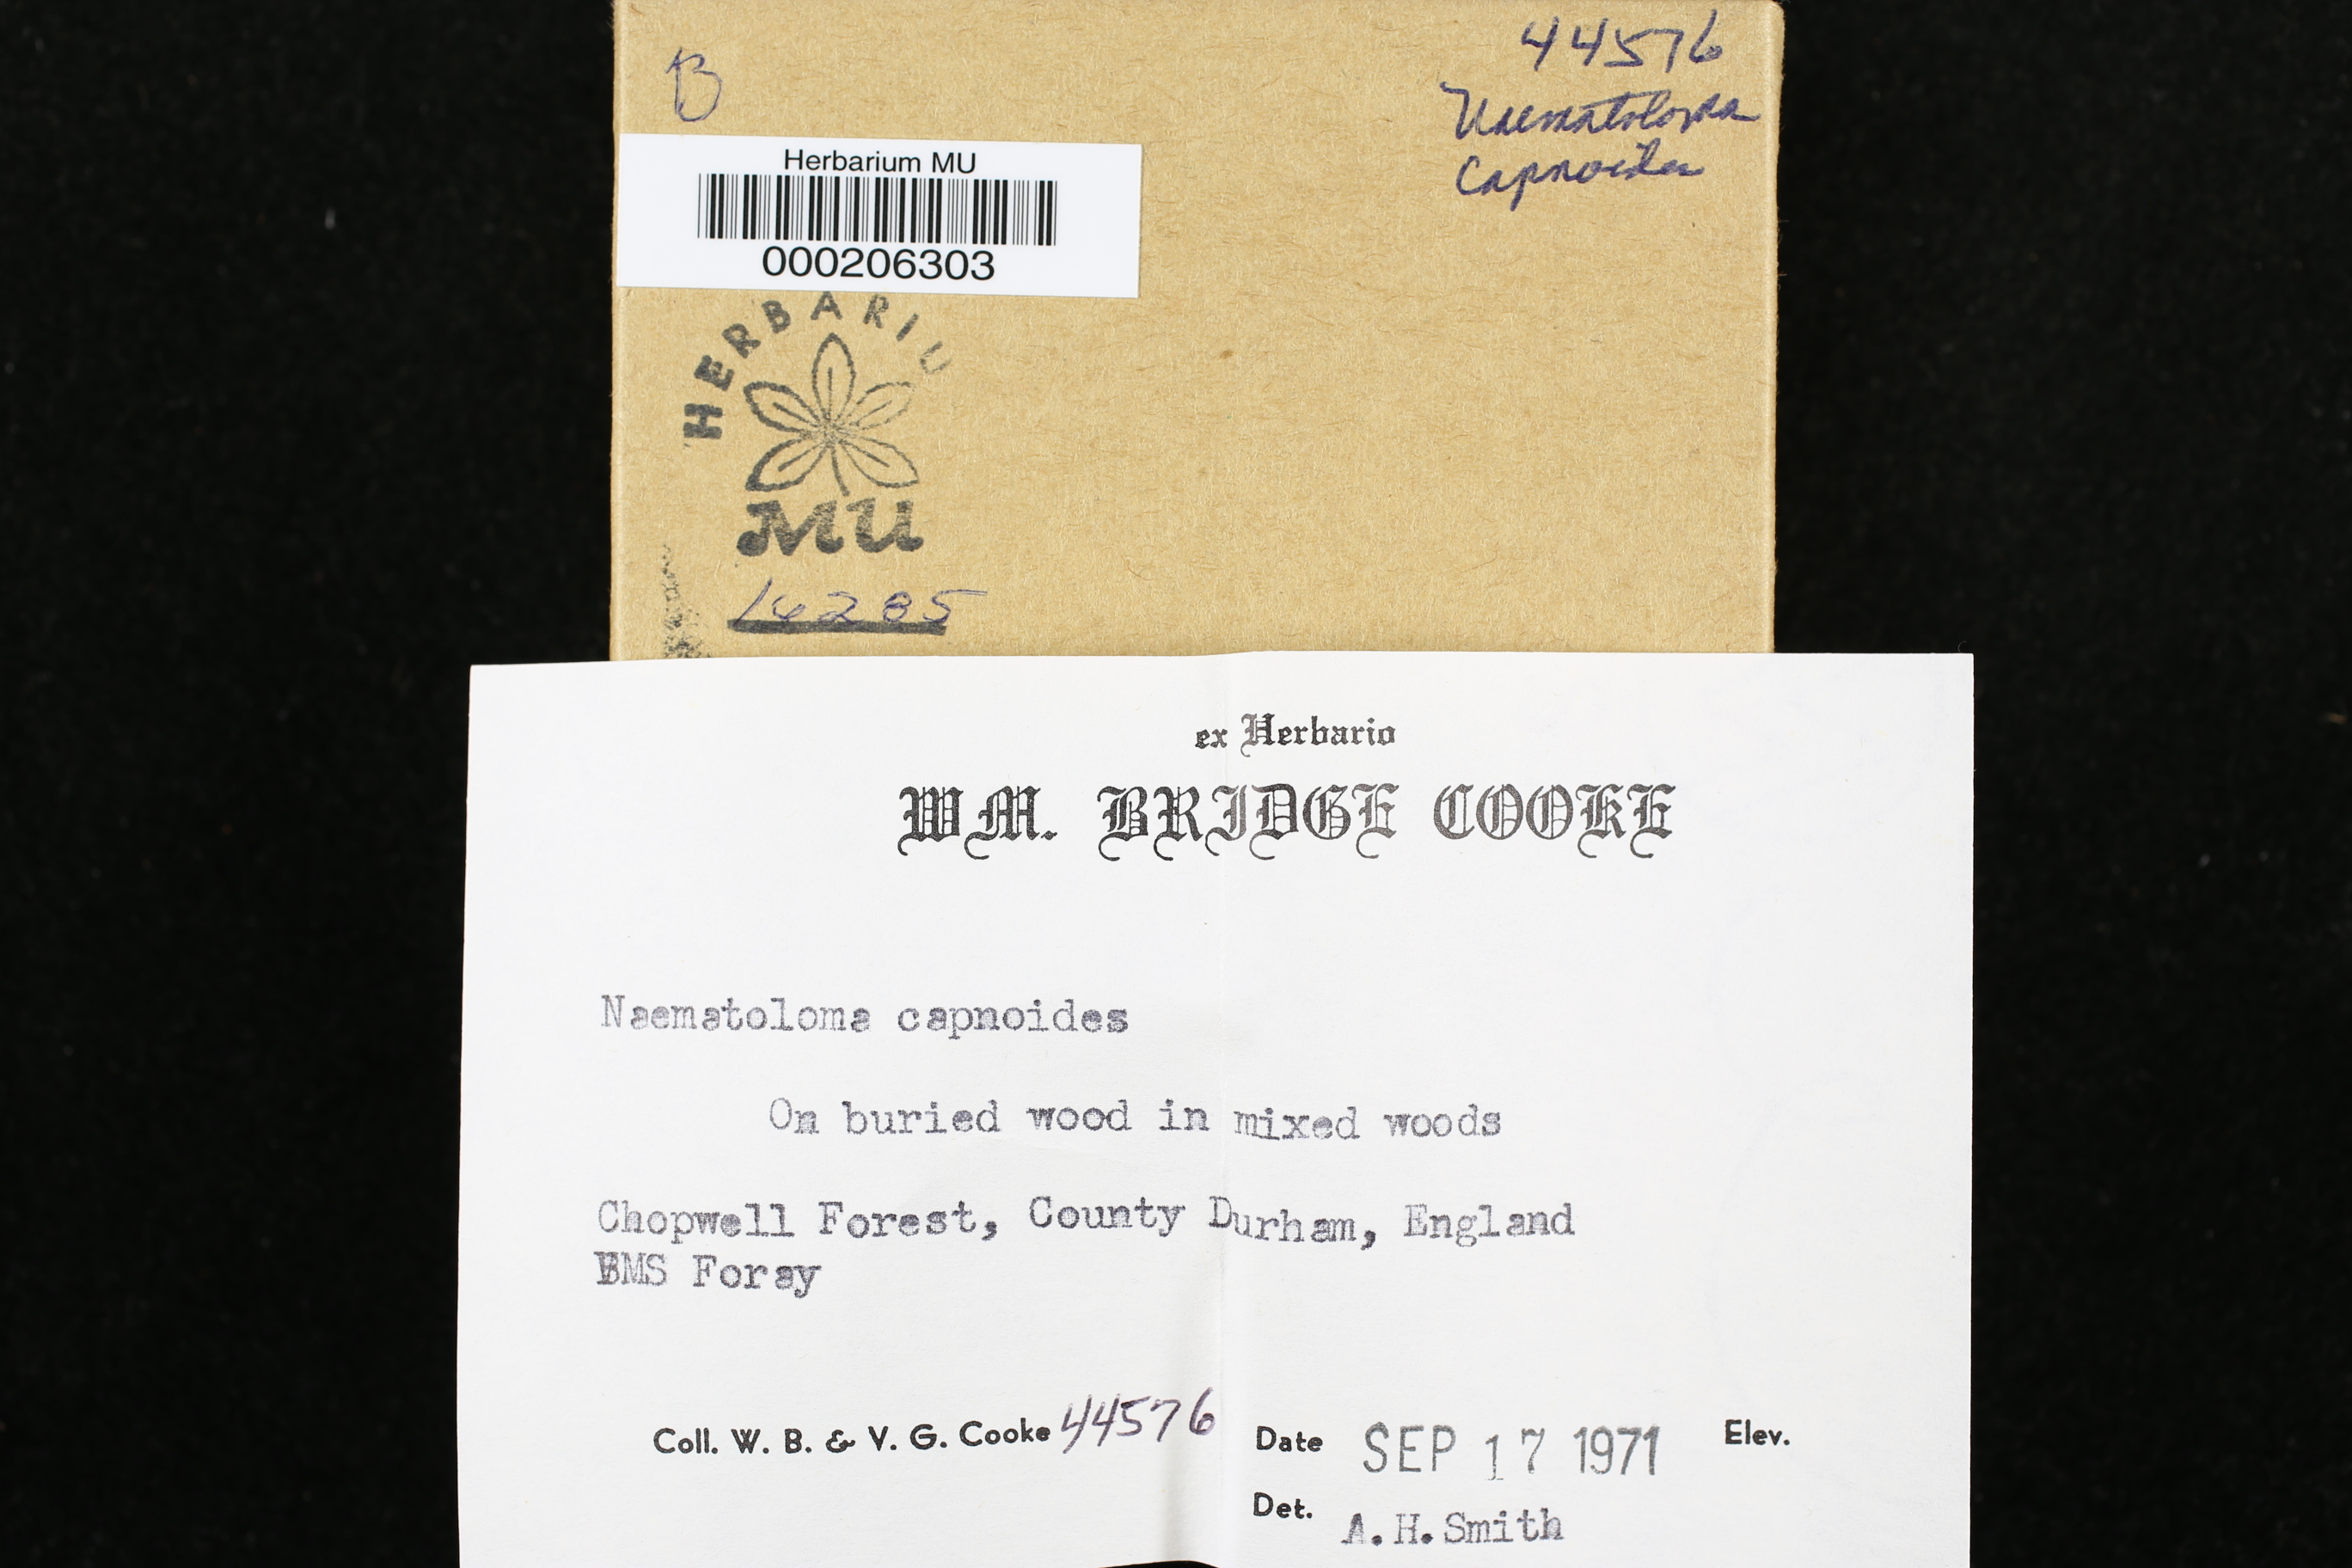 B
44576
Naematoloma
Capnoides
Herbarium MU
000206303
HERBARIU
MU
16285
ex Herbario
WM. BRIDGE COOKE
Naematoloma capnoides
On buried wood in mixed woods
Chopwell Forest, County Durham, England
BMS Foray
Coll. W. B. & V. G. Cooke 44576 Date SEP 17 1971 Elev.
Det. A.H.Smith